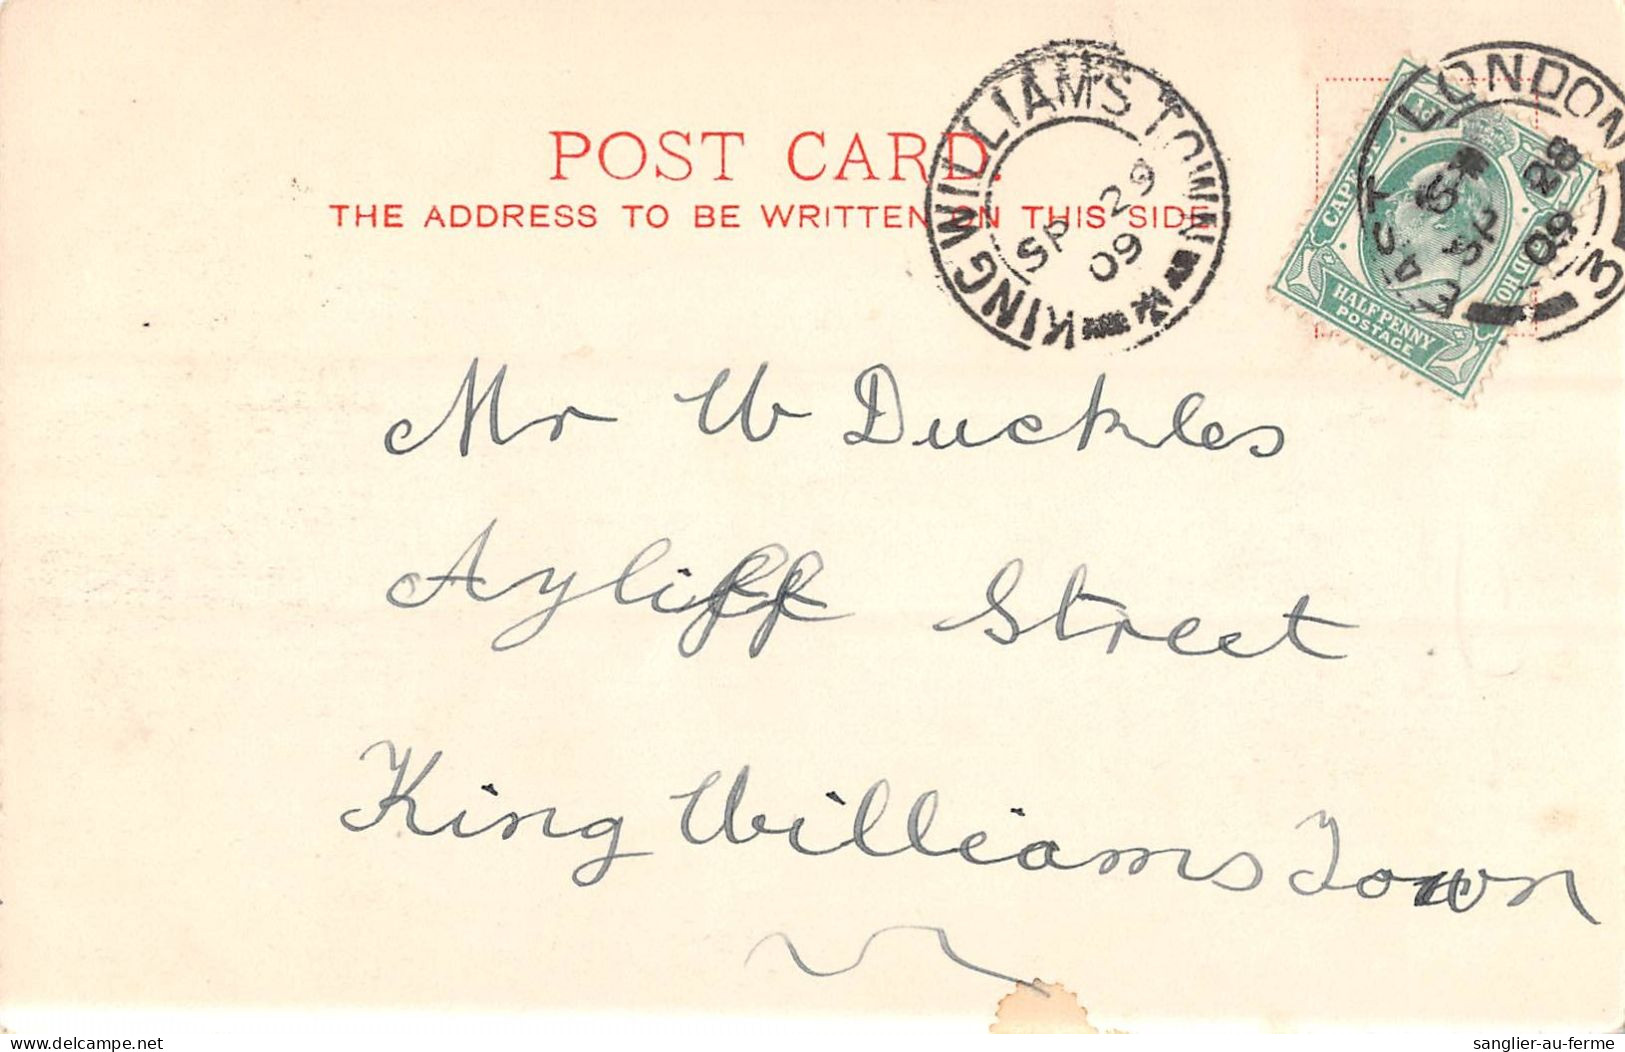 POST CARD.
THE ADDRESS TO BE WRITTEN ON THIS SIDE
KING WILLIAMS TOWN
SP 29
09
EAST LONDON 3
SP 28
09
CAPE OF GOOD HOPE
½d
HALFPENNY
POSTAGE
Mr W Duckles
Ayliff Street
King Williams Town
www.delcampe.net
sanglier-au-ferme